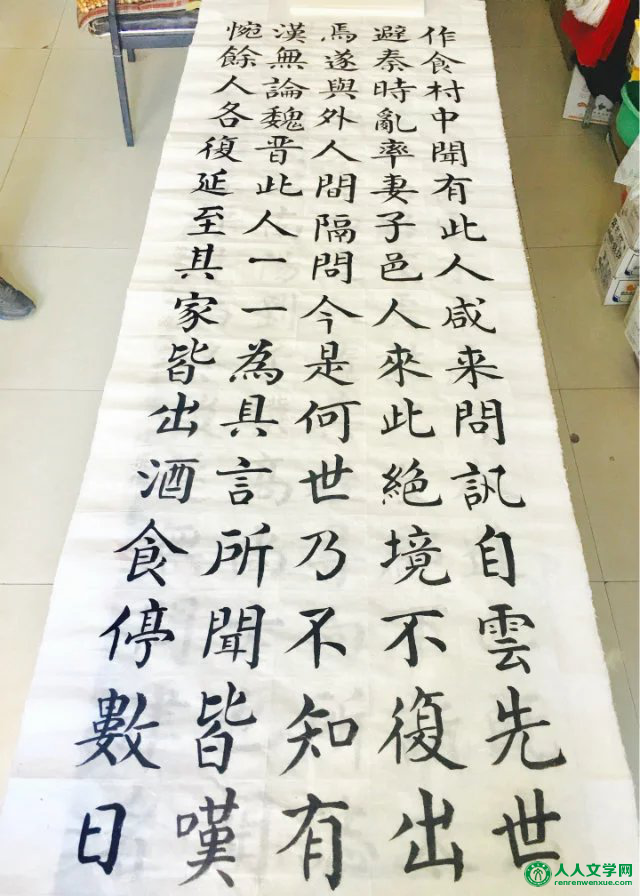 作食村中聞有此人咸来問訊自雲先世
避秦時亂率妻子邑人來此絕境不復出
焉遂與外人間隔問今是何世乃不知有
漢無論魏晋此人一一為具言所聞皆嘆
惋餘人各復延至其家皆出酒食停數日
人人文学网
renrenwenxue.com